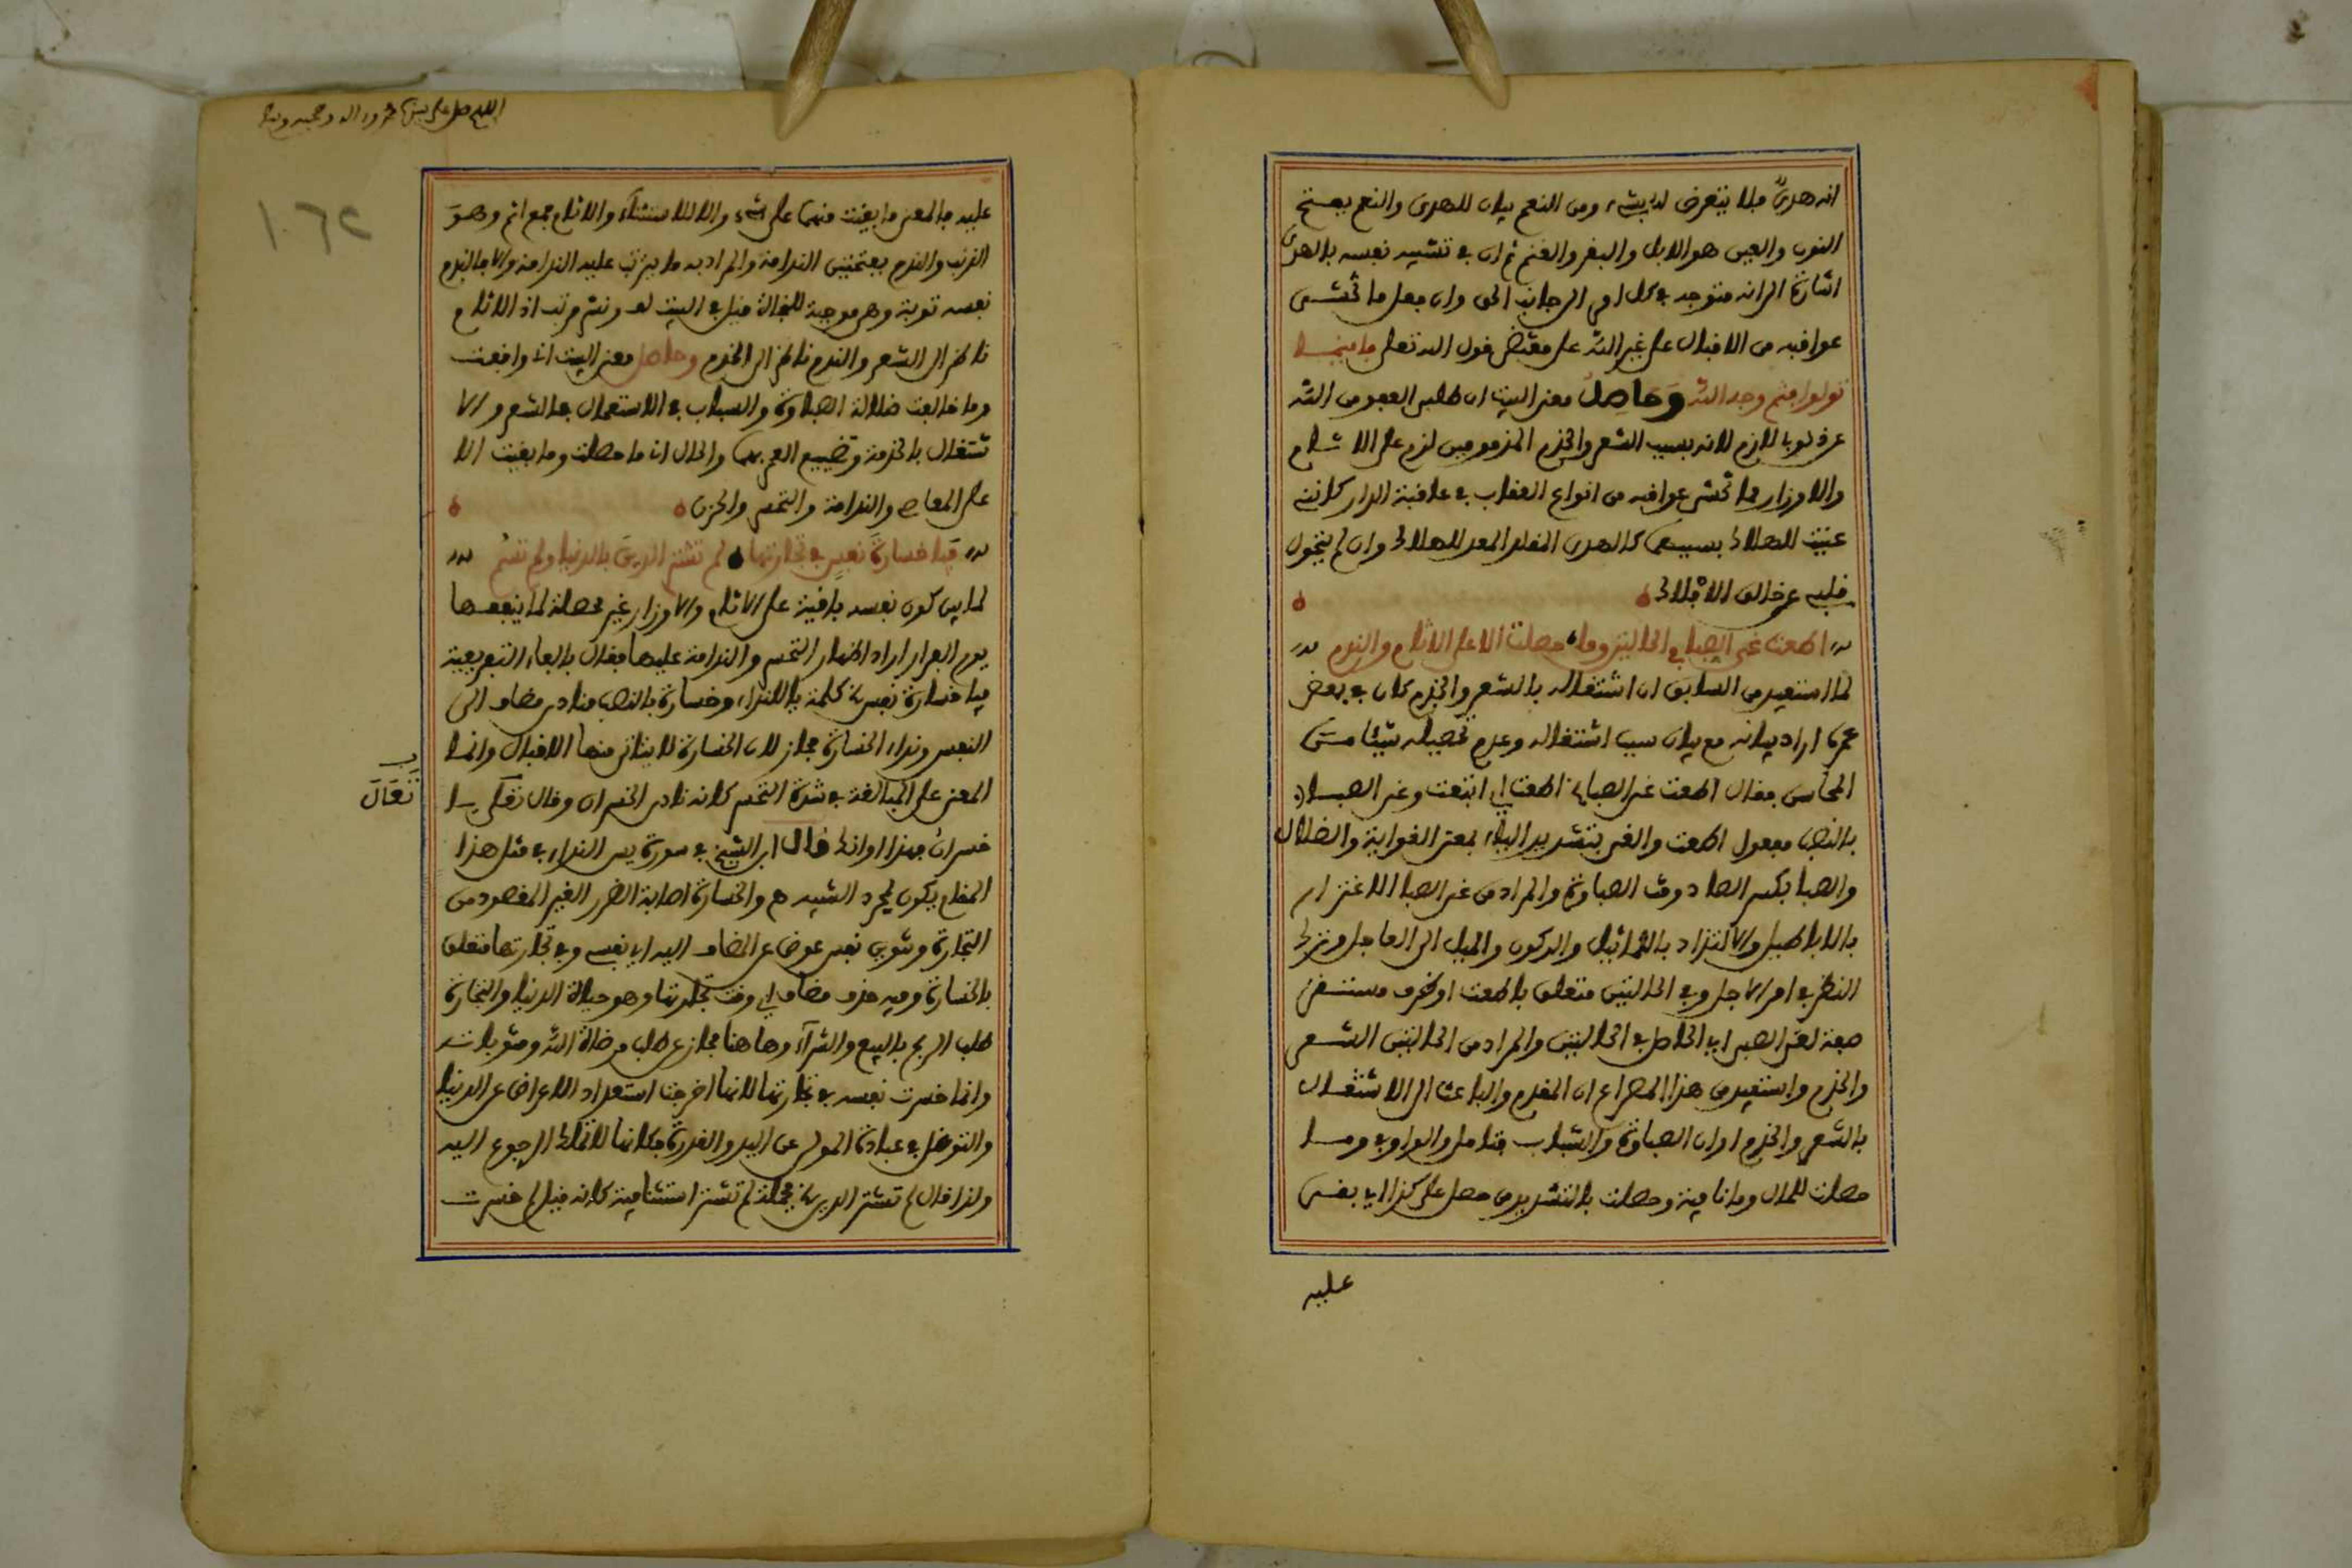 انه هدى فلا يتعرض لدبشيء ومن النعم بيان للهدى والنعم بفتح
النون والعين هو الابل والبقر والغنم ثم ان في تشبيه نفسه بالهدى
اشارة الى انه متوجه في كل امر الى جانب الحق وان فعل ما تخشى
عواقبه من الاقبال على غير الله على مقتضى قول الله تعلى فاينما
تولوا فثم وجه الله وحاصل معنى البيت ان طلبى العفو من الله
عن ذنوبى لازم لانه بسبب الشعر والخدم المذمومين لزم على الاثام
والاوزار مما تخشى عواقبه من انواع العقاب في عاقبة الدار كاننى
عينت للهلاك بسببهما كالهدى المقلد المعد للهلاك وان لم يتحول
قلبى عن خالق الافلاك
اطعت غي الصبا في الحالتين وما حصلت الا على الاثام والندم
لما استفيد من السابق ان اشتغاله بالشعر والخدم كان في بعض
عمره اراد بيانه مع بيان سبب اشتغاله وعدم تحصيله شيئا من
المحاسن فقال اطعت غي الصبا اطعت اي اتبعت وغي الصبا
بالنصب مفعول اطعت والغي بتشديد الياء بمعنى الغواية والضلال
والصبا بكسر الصاد وقت الصباوة والمراد من غي الصبا الاغترار
بالاباطيل والالتزاد بالتماثيل والركون والميل الى العاجل وترك
النظر في امر الاجل وفي الحالتين متعلق باطعت او ظرف مستقر
صفة لغى الصبى اي الحاصل في الحالتين والمراد من الحالتين الشعر
والخدم واستفيد من هذا المصراع ان المقدم والباعث الى الاشتغال
بالشعر والخدم اوان الصباوة والشباب فتامل والواو في وما
حصلت للحال وما نافية وحصلت بالتشديد من حصل على كذا اي بقى
عليه
اللهم صل على سيدنا محمد واله وصحبه وسلم
١٠٦٢
عليه فالمعنى ما بقيت منهما على شيء والا للاستثناء والاثام جمع اثم وهو
الذنب والندم بفتحتين الندامة والمراد به ما يترتب عليه الندامة والا فالندم
نفسه توبة وهى موجبة للنجاة قيل في البيت لف ونشر مرتب اذ الاثام
ناظر الى الشعر والندم ناظر الى الخدم وحاصل معنى البيت انى وافقت
وما خالفت ضلالة الصباوة والشباب في الاستعمال بالشعر والا
شتغال بالخدمة وتضييع العمر بهما والحال انى ما حصلت وما بقيت الا
على المعاصي والندامة والتحسر والحزن
فيا خسارة نفس في تجارتها لم تشتر الدين بالدنيا ولم تسم
لما بين كون نفسه باقية على الاثام والاوزار غير محصلة لما ينفعها
يوم القرار اراد اظهار التحسر والندامة عليها فقال بالفاء التفريعية
فيا خسارة نفس يا كلمة يا للنداء وخسارة بالنصب منادى مضاف الى
النفس ونداء الخسارة مجاز لان الخسارة لا يتاتى منها الاقبال وانما
المعنى على المبالغة في شدة التحسر كانه نادى الخسران وقال تعالى يا
تعال
خسران فهذا اوانك قال ابن الشيخ في سورة يس النداء في مثل هذا
المقام يكون لمجرد التنبيه والخسارة اصابة الضرر الغير المقصود من
التجارة وتنوين نفس عوض عن المضاف اليه اي نفسى وفي تجارتها متعلق
بالخسارة وفيه حذف مضاف اي وقت تجارتها وهو حياة الدنيا والتجارة
طلب الربح بالبيع والشراء وهاهنا مجاز عن طلب مرضاة الله ومثوباته
وانما خسرت نفسه في تجارتها لانها اخرجت استعداد الاعراض عن الدنيا
والتوغل في عبادة المولى عن اليد والقدرة فكانها لا تملك الرجوع اليه
ولذا قال لم تشتر الدين جملة لم تشتر استئنافية كانه قيل لم خسرت